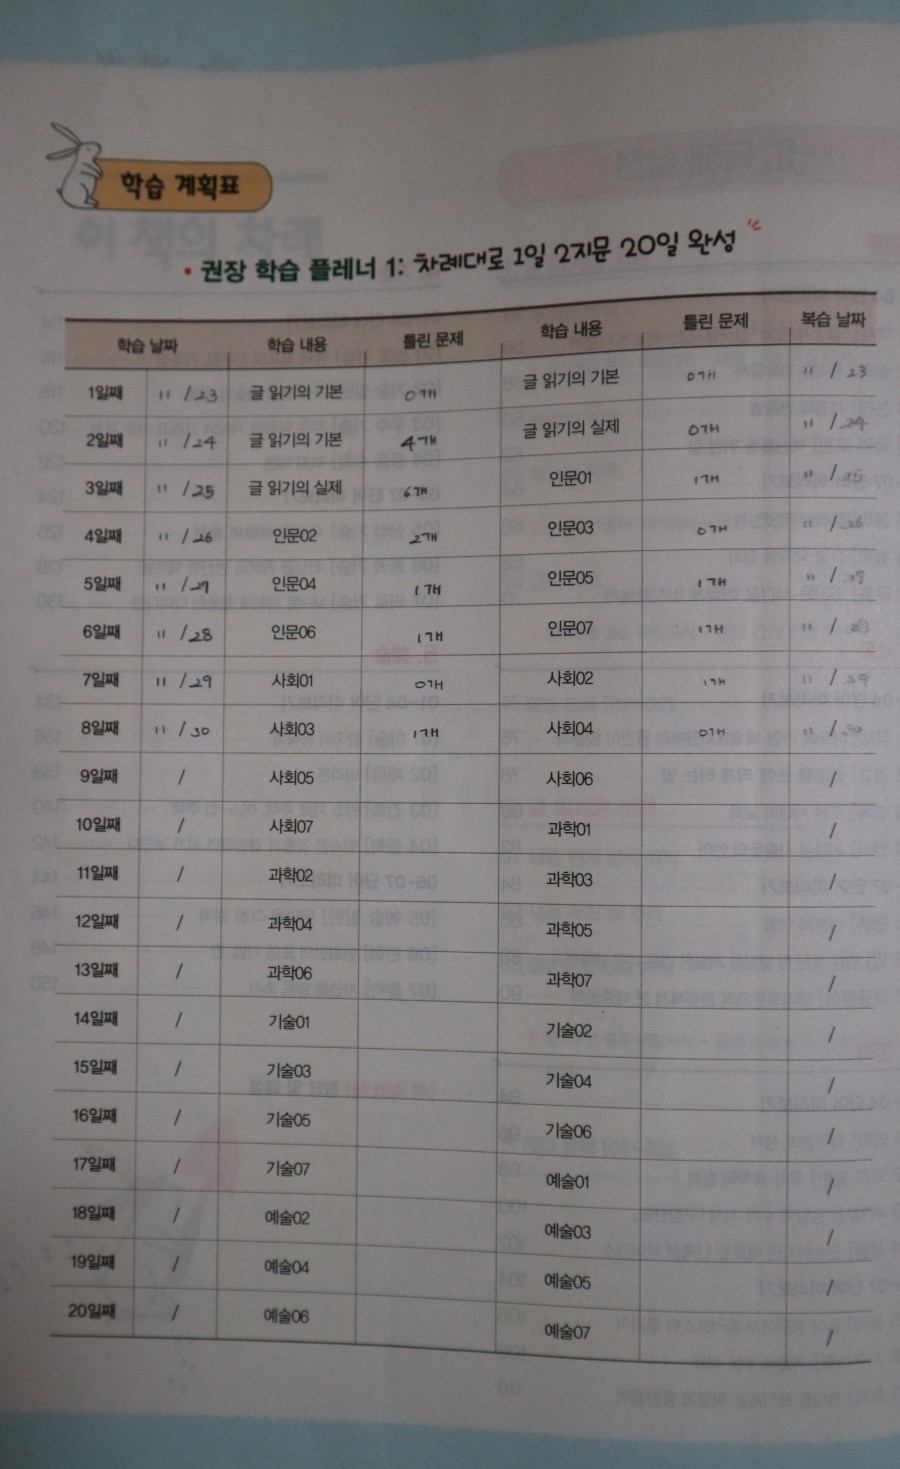 학습 계획표
• 권장 학습 플레너 1: 차례대로 1일 2지문 20일 완성
학습 날짜 학습 내용 틀린 문제 학습 내용 틀린 문제 복습 날짜
1일째 11 / 23 글 읽기의 기본 0개 글 읽기의 기본 0개 11 / 23
2일째 11 / 24 글 읽기의 기본 4개 글 읽기의 실제 0개 11 / 24
3일째 11 / 25 글 읽기의 실제 6개 인문01 1개 11 / 25
4일째 11 / 26 인문02 2개 인문03 0개 11 / 26
5일째 11 / 29 인문04 1개 인문05 1개 11 /
6일째 11 / 28 인문06 1개 인문07 1개 11 /
7일째 11 / 29 사회01 0개 사회02 1개 11 / 29
8일째 11 / 30 사회03 1개 사회04 0개 11 / 30
9일째 / 사회05 사회06 /
10일째 / 사회07 과학01 /
11일째 / 과학02 과학03 /
12일째 / 과학04 과학05 /
13일째 / 과학06 과학07 /
14일째 / 기술01 기술02 /
15일째 / 기술03 기술04 /
16일째 / 기술05 기술06 /
17일째 / 기술07 예술01 /
18일째 / 예술02 예술03 /
19일째 / 예술04 예술05 /
20일째 / 예술06 예술07 /